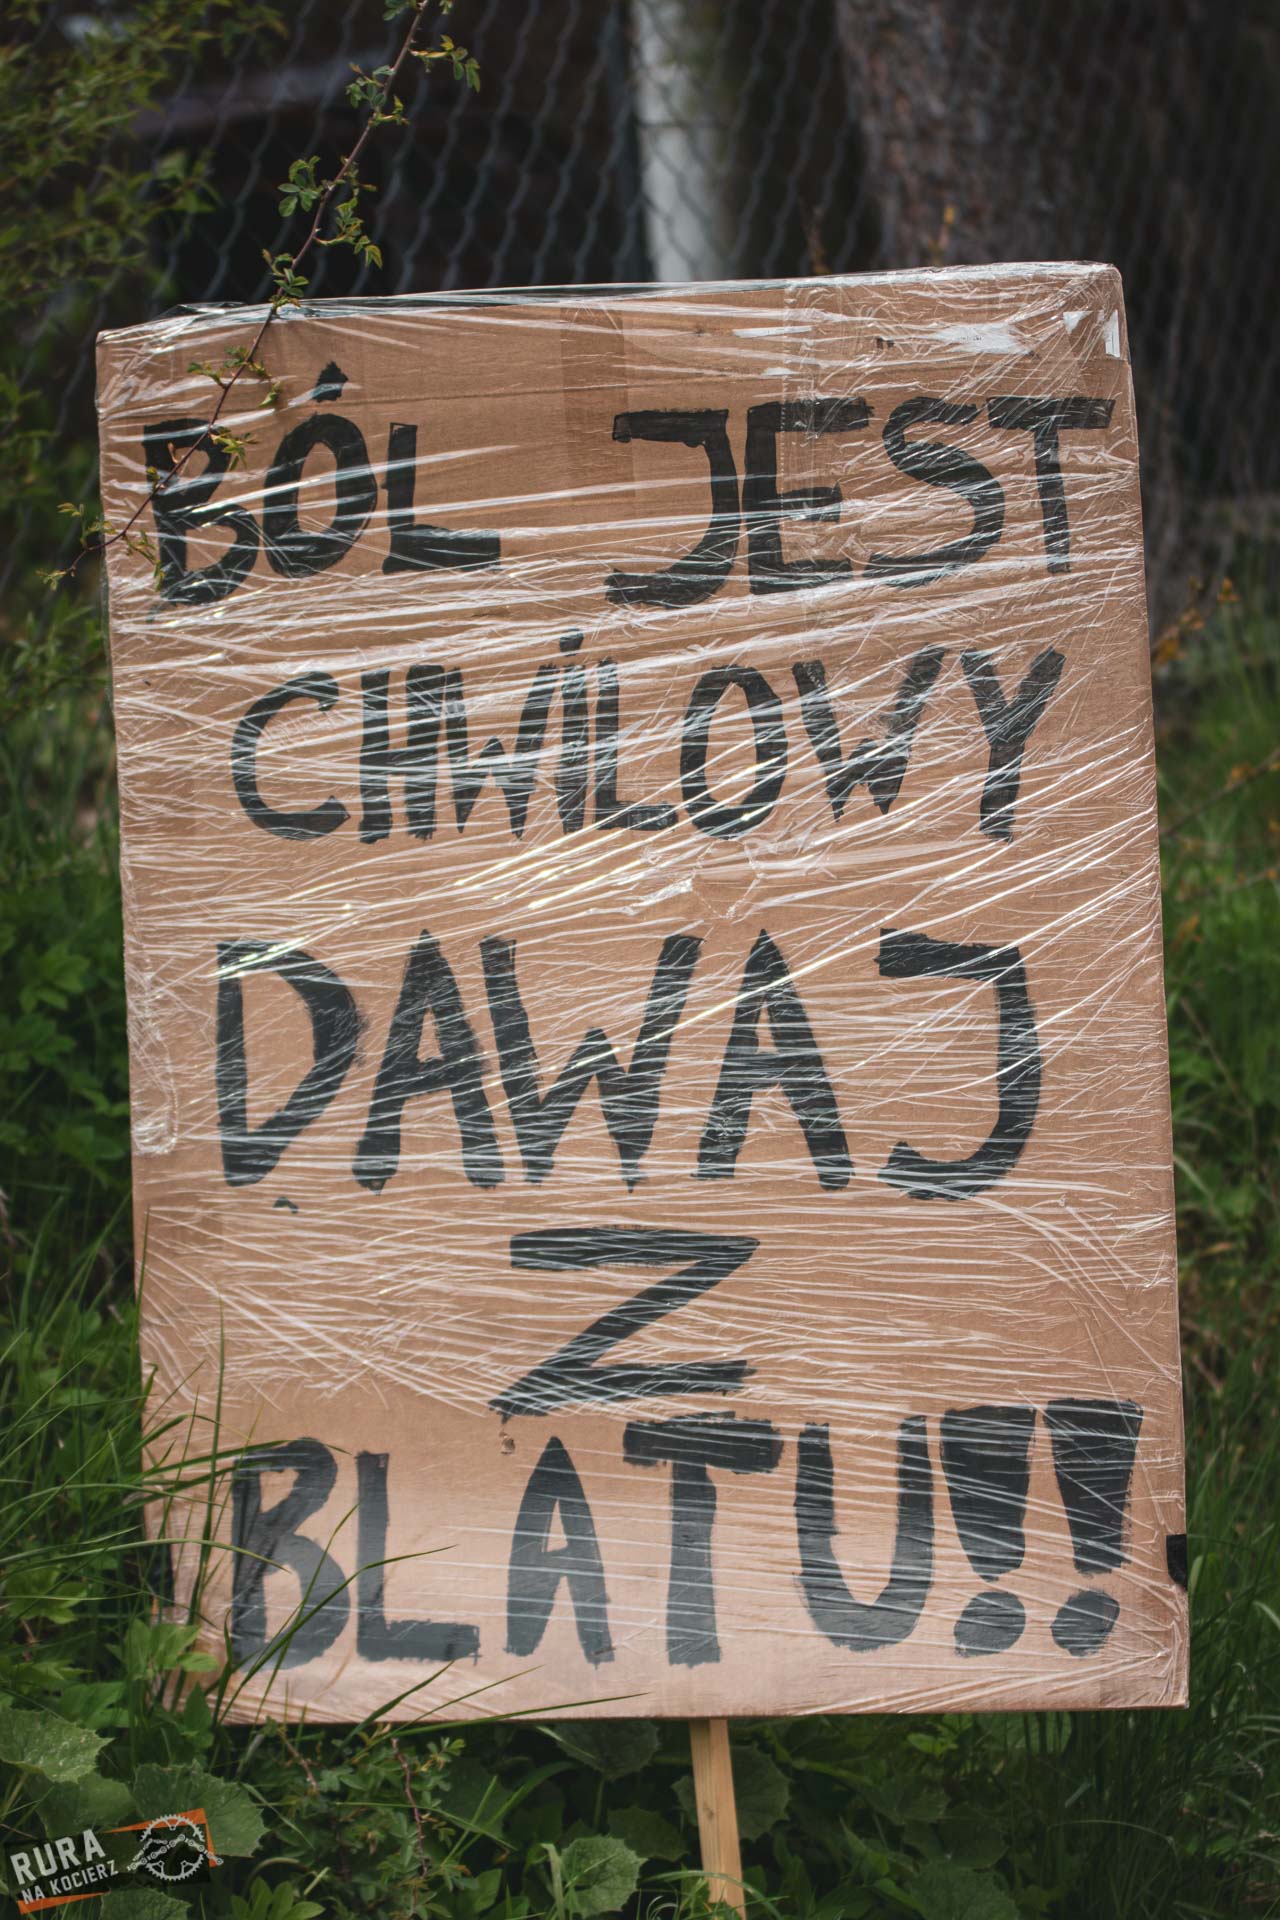 BÓL JEST
CHWILOWY
DAWAJ
Z
BLATU!!
RURA
NA KOCIERZ